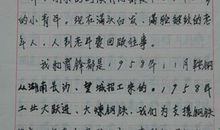 的小青年。现在满头白发，满脸皱纹的老
年人，人到老年爱回顾往事。
我和曾锦都是1958年11月经
从湖南长沙、望城招工来的，1958年
工业大跃进、大炼钢铁，我们为支援钢铁